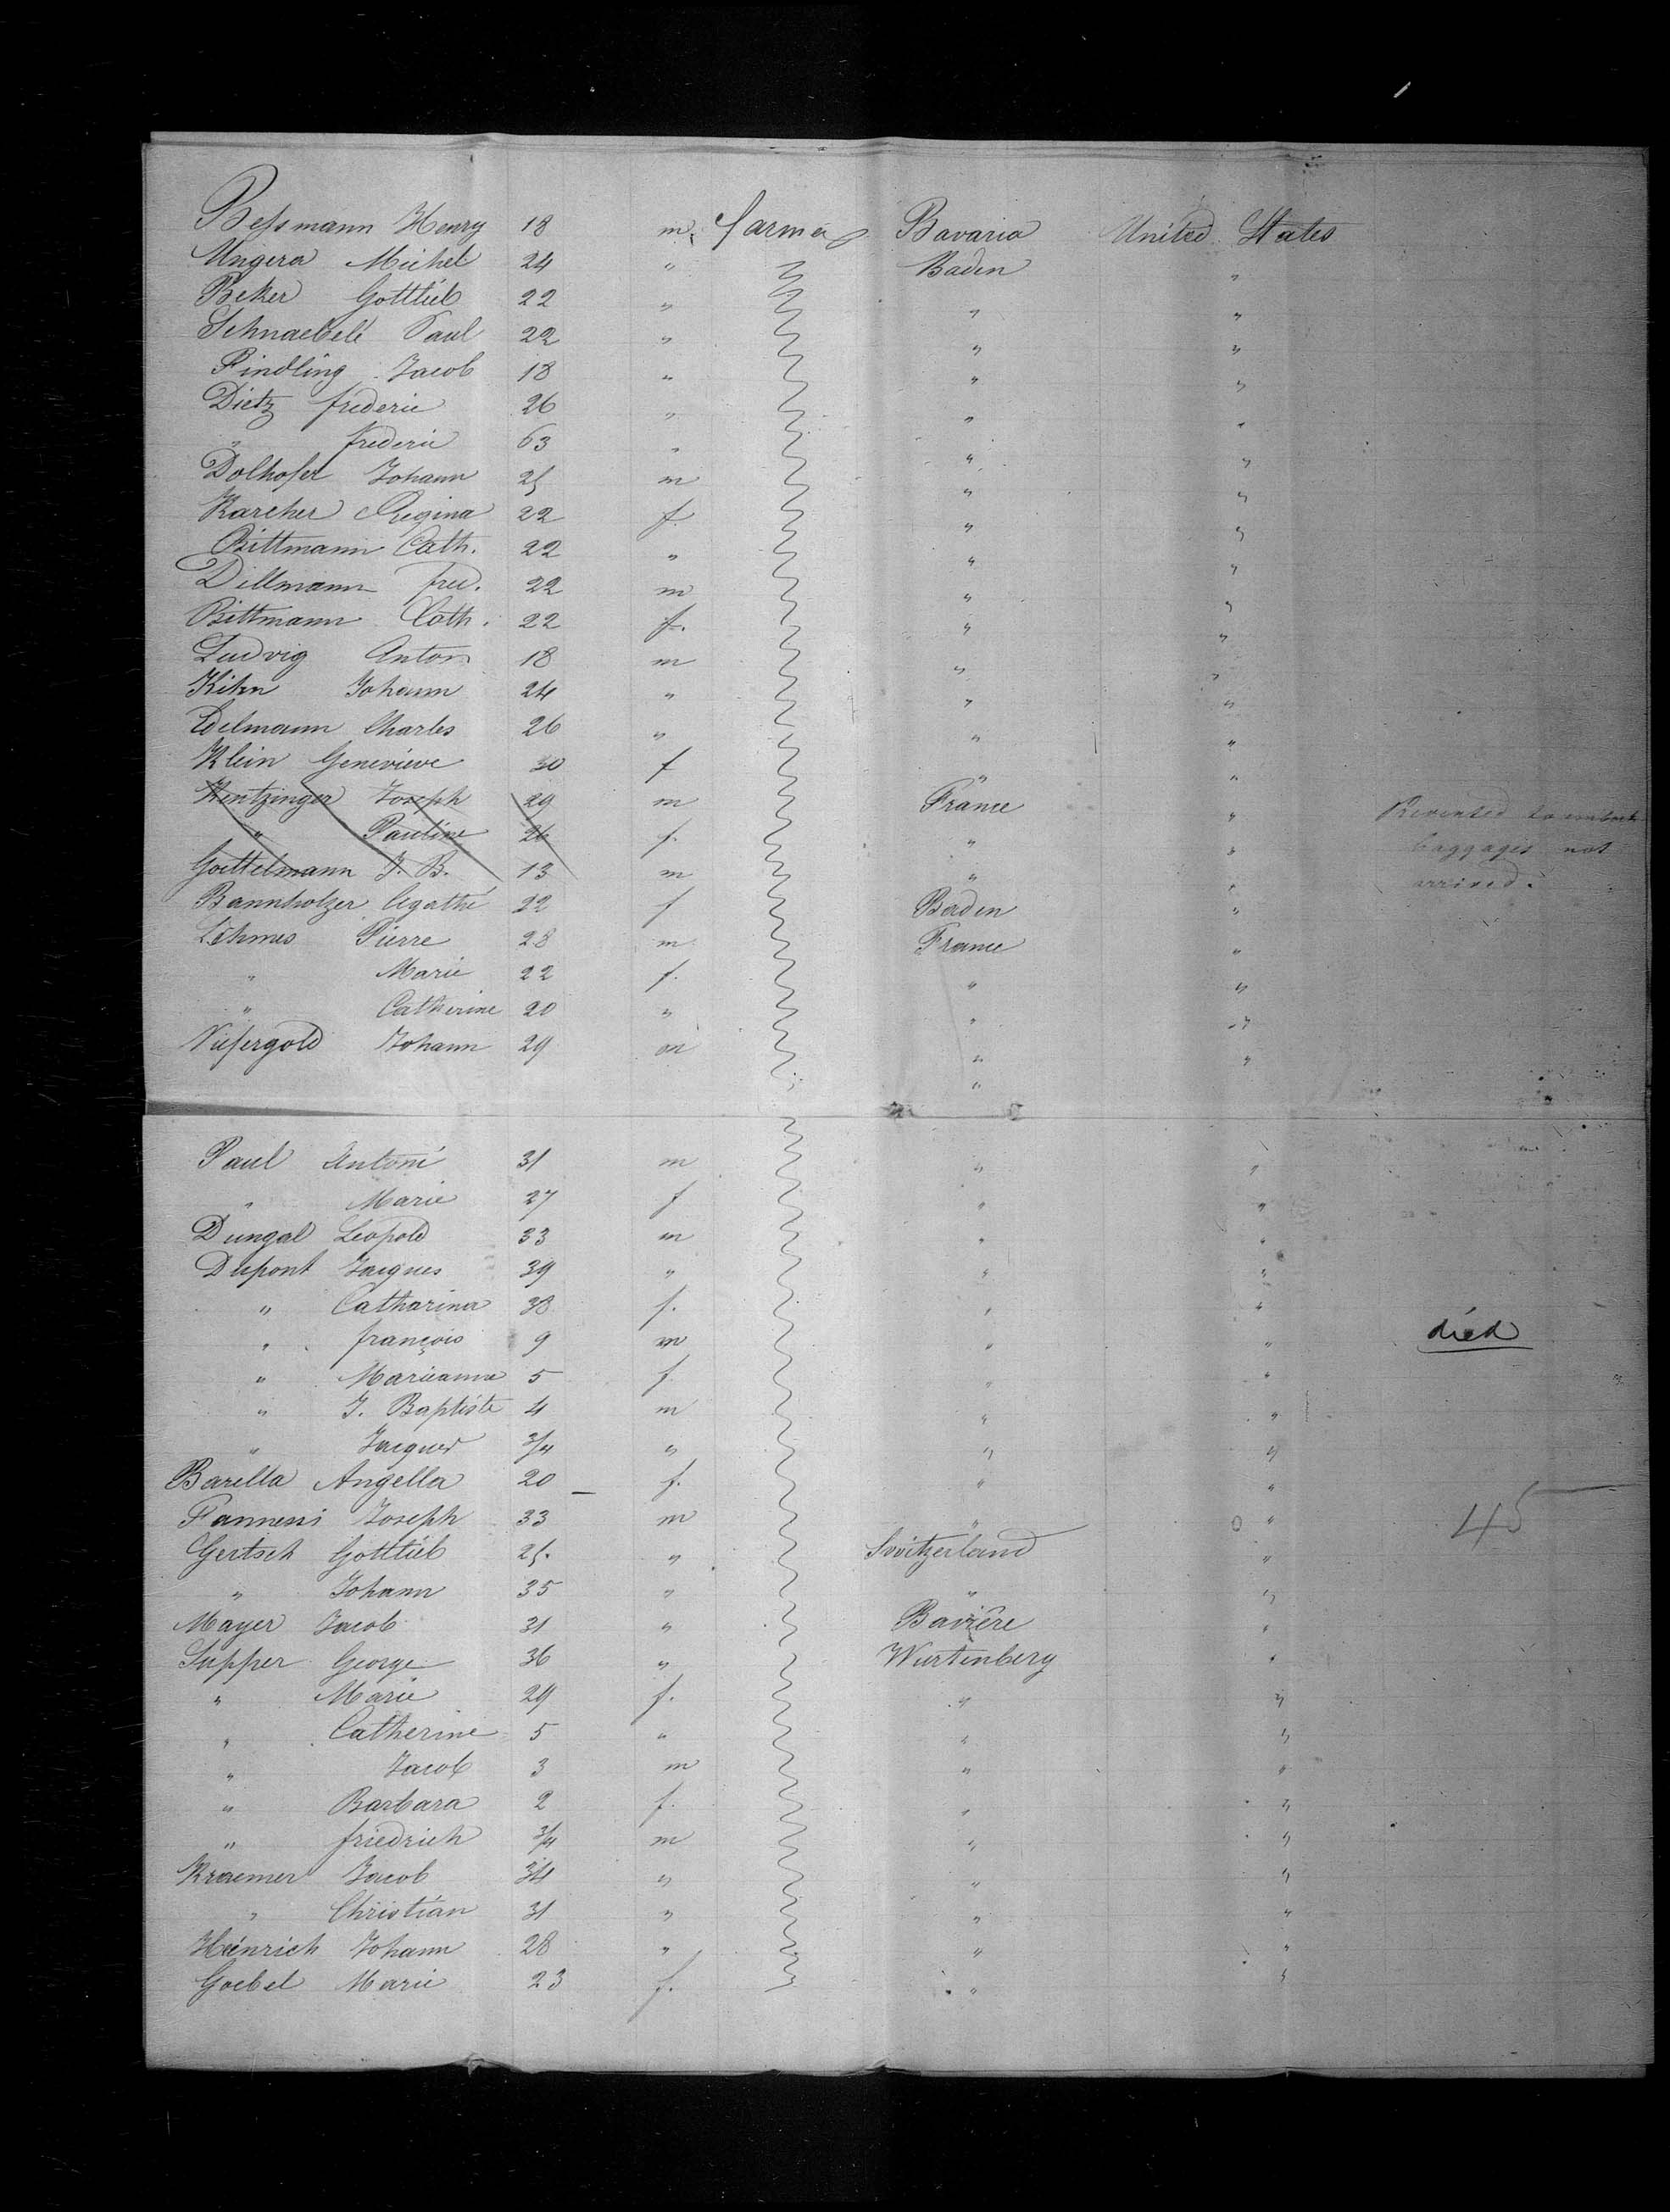 Bessmann Henry 18 m. farmer Bavaria United States
Ungera Michel 24 " Baden "
Beker Gottlieb 22 " " "
Schnaebelé Paul 22 " " "
Findling Jacob 18 " " "
Dietz frederic 26 " " "
" frederic 63 " " "
Dolhofer Johann 25 m " "
Karcher Regina 22 f " "
Bittmann Cath. 22 " " "
Dillmann fred. 22 m " "
Bittmann Cath. 22 f. " "
Ludvig Anton 18 m " "
Kihn Johann 24 " " "
Edelmann Charles 26 " " "
Klein Genevieve 30 f " "
Kentzinger Joseph 29 m France "
" Pauline 26 f. " " Prevented to embark
Goettelmann J. B. 13 m " " baggages not
Bannholzer Agathe 22 f Baden " arrived.
Lehmes Pierre 28 m France "
" Marie 22 f. " "
" Catherine 20 " " "
Niefergold Johann 29 m " "
"
Paul Antoni 31 m " "
" Marie 27 f " "
Dungal Leopold 33 m " "
Dupont Jacques 39 " " "
" Catharina 38 f. " "
" françois 9 m " " died
" Marieanna 5 f " "
" J. Baptiste 4 m " "
" Jacques 3/4 " " "
Barella Angella 20 f. " "
Fannessi Joseph 33 m " " 45
Gertsch Gottlieb 25. " Switzerland "
" Johann 35 " " "
Mayer Jacob 31 " Bavière "
Supper George 36 " Wurtenberg "
" Marie 29 f. " "
" Catherine 5 " " "
" Jacob 3 m " "
" Barbara 2 f. " "
" friedrich 3/4 m " "
Kraemer Jacob 34 " " "
" Christian 31 " " "
Heinrich Johann 28 " " "
Goebel Marie 23 f. " "